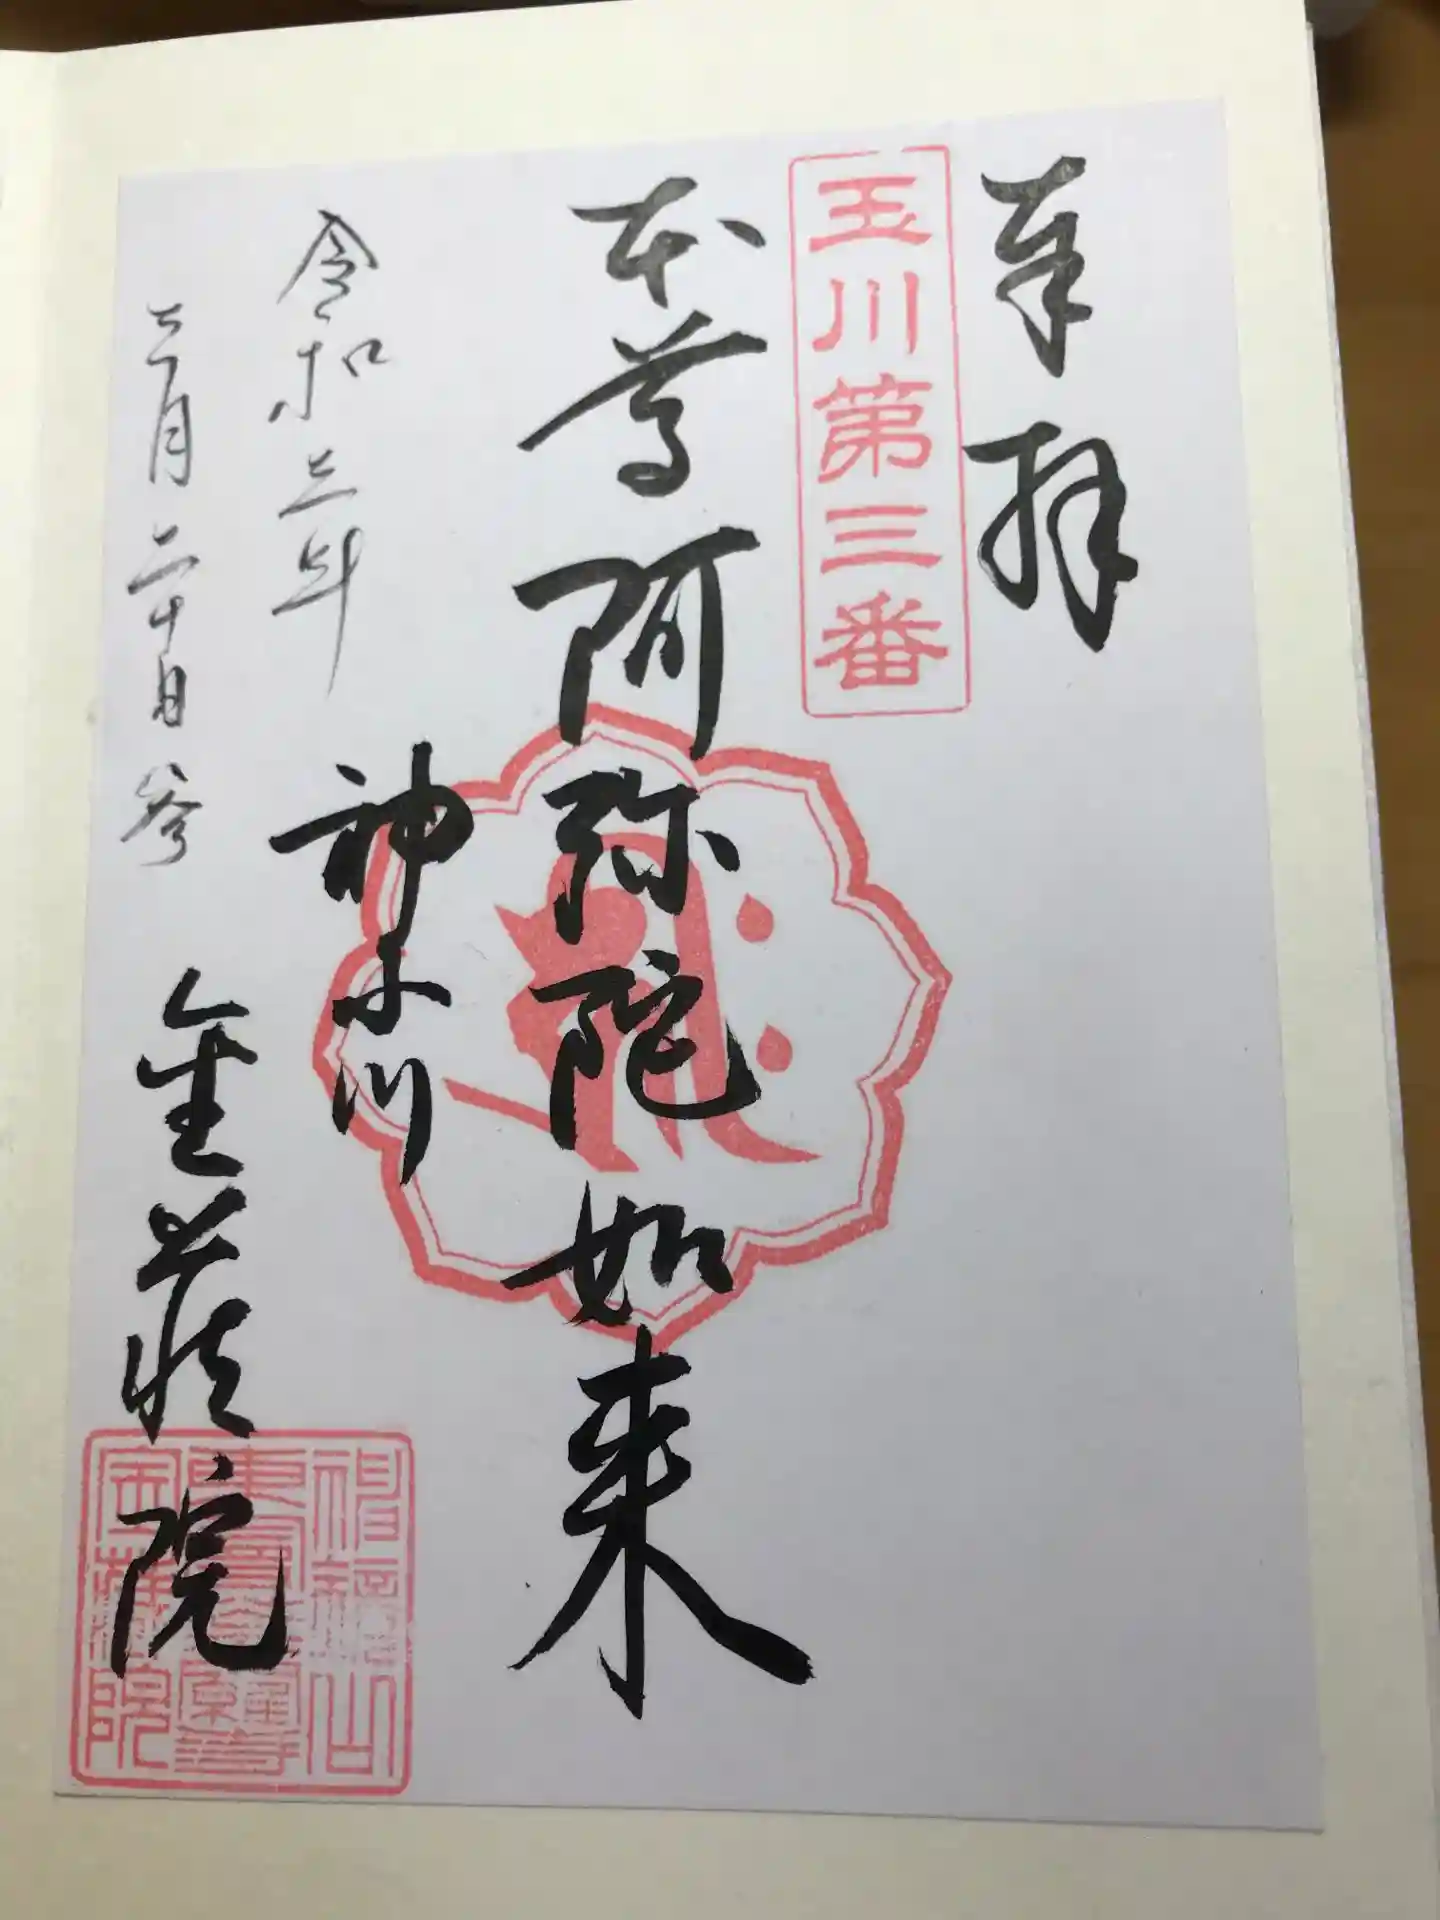 奉拝
玉川第三番
本尊阿弥陀如来
神奈川
令和三年
三月二十日参
金蔵院